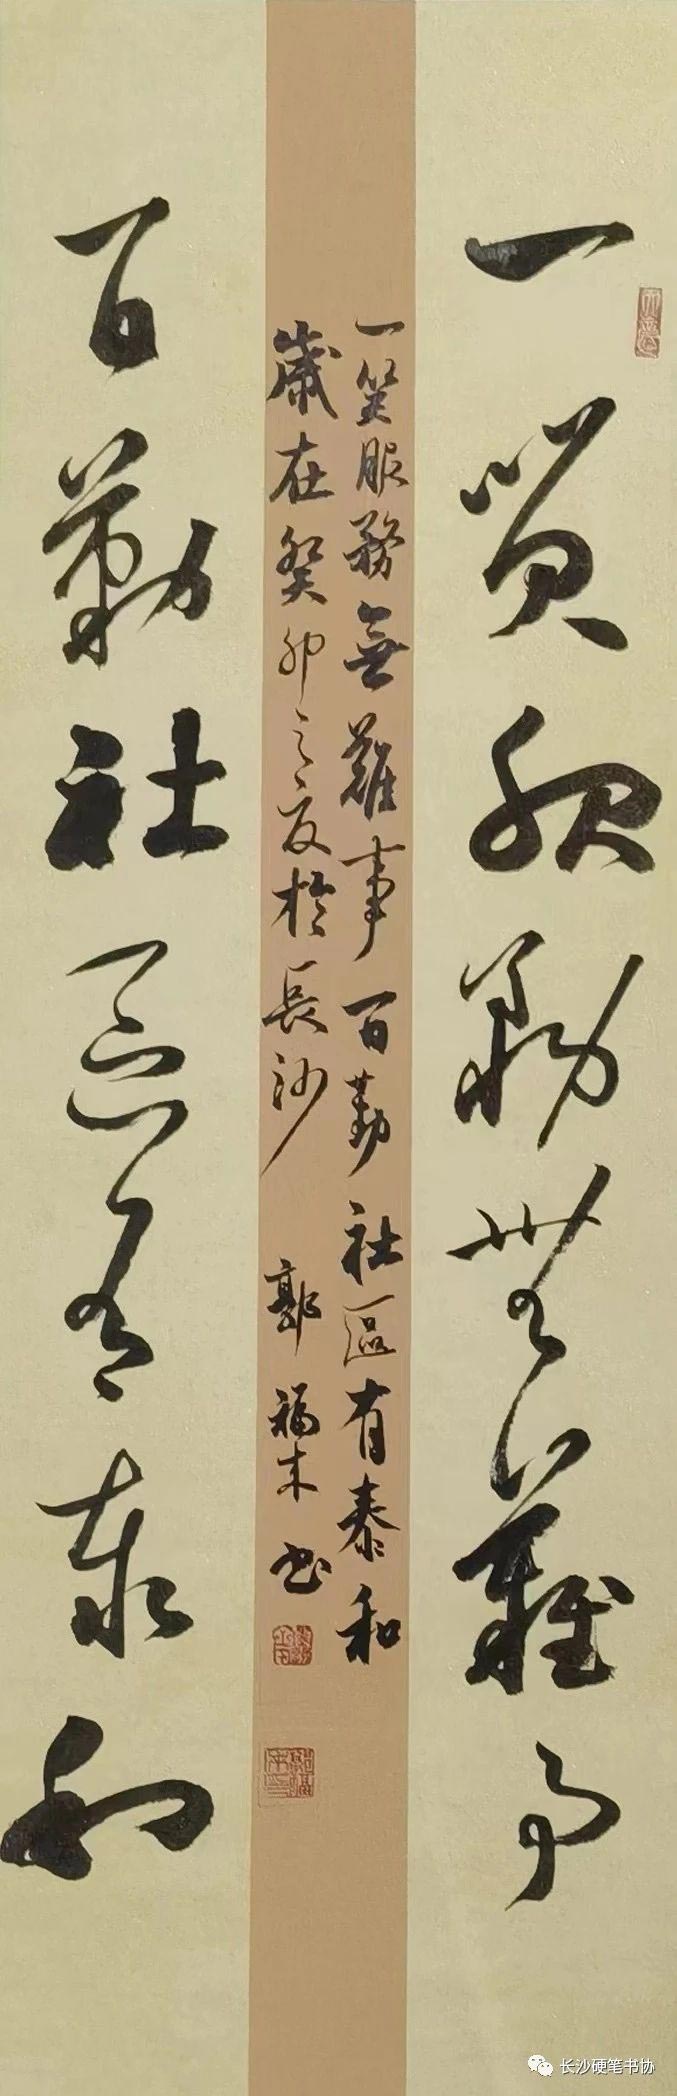 一笑服務無難事
一笑服務無難事百勤社區有泰和
歲在癸卯之夏於長沙 郭福木書
百勤社區有泰和
长沙硬笔书协